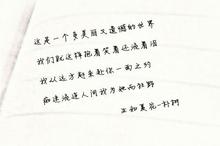 这是一个多美丽又遗憾的世界
我们就这样抱着笑着还流着泪
我从远方赶来赴你一面之约
痴迷流连人间我为她而狂野